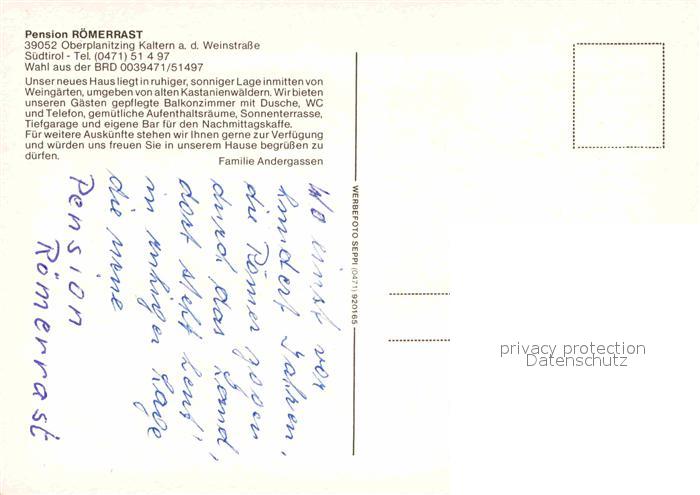 Pension RÖMERRAST
39052 Oberplanitzing Kaltern a. d. Weinstraße
Südtirol - Tel. (0471) 51 4 97
Wahl aus der BRD 0039471/51497
Unser neues Haus liegt in ruhiger, sonniger Lage inmitten von
Weingärten, umgeben von alten Kastanienwäldern. Wir bieten
unseren Gästen gepflegte Balkonzimmer mit Dusche, WC
und Telefon, gemütliche Aufenthaltsräume, Sonnenterrasse,
Tiefgarage und eigene Bar für den Nachmittagskaffe.
Für weitere Auskünfte stehen wir Ihnen gerne zur Verfügung
und würden uns freuen Sie in unserem Hause begrüßen zu
dürfen.
Familie Andergassen
Wo einst vor
hundert Jahren,
die Römer zogen
durch das Land,
dort steht heut'
in ruhiger Lage
die meine
Pension
Römerrast
WERBEFOTO SEPPI (0471) 920165
privacy protection
Datenschutz